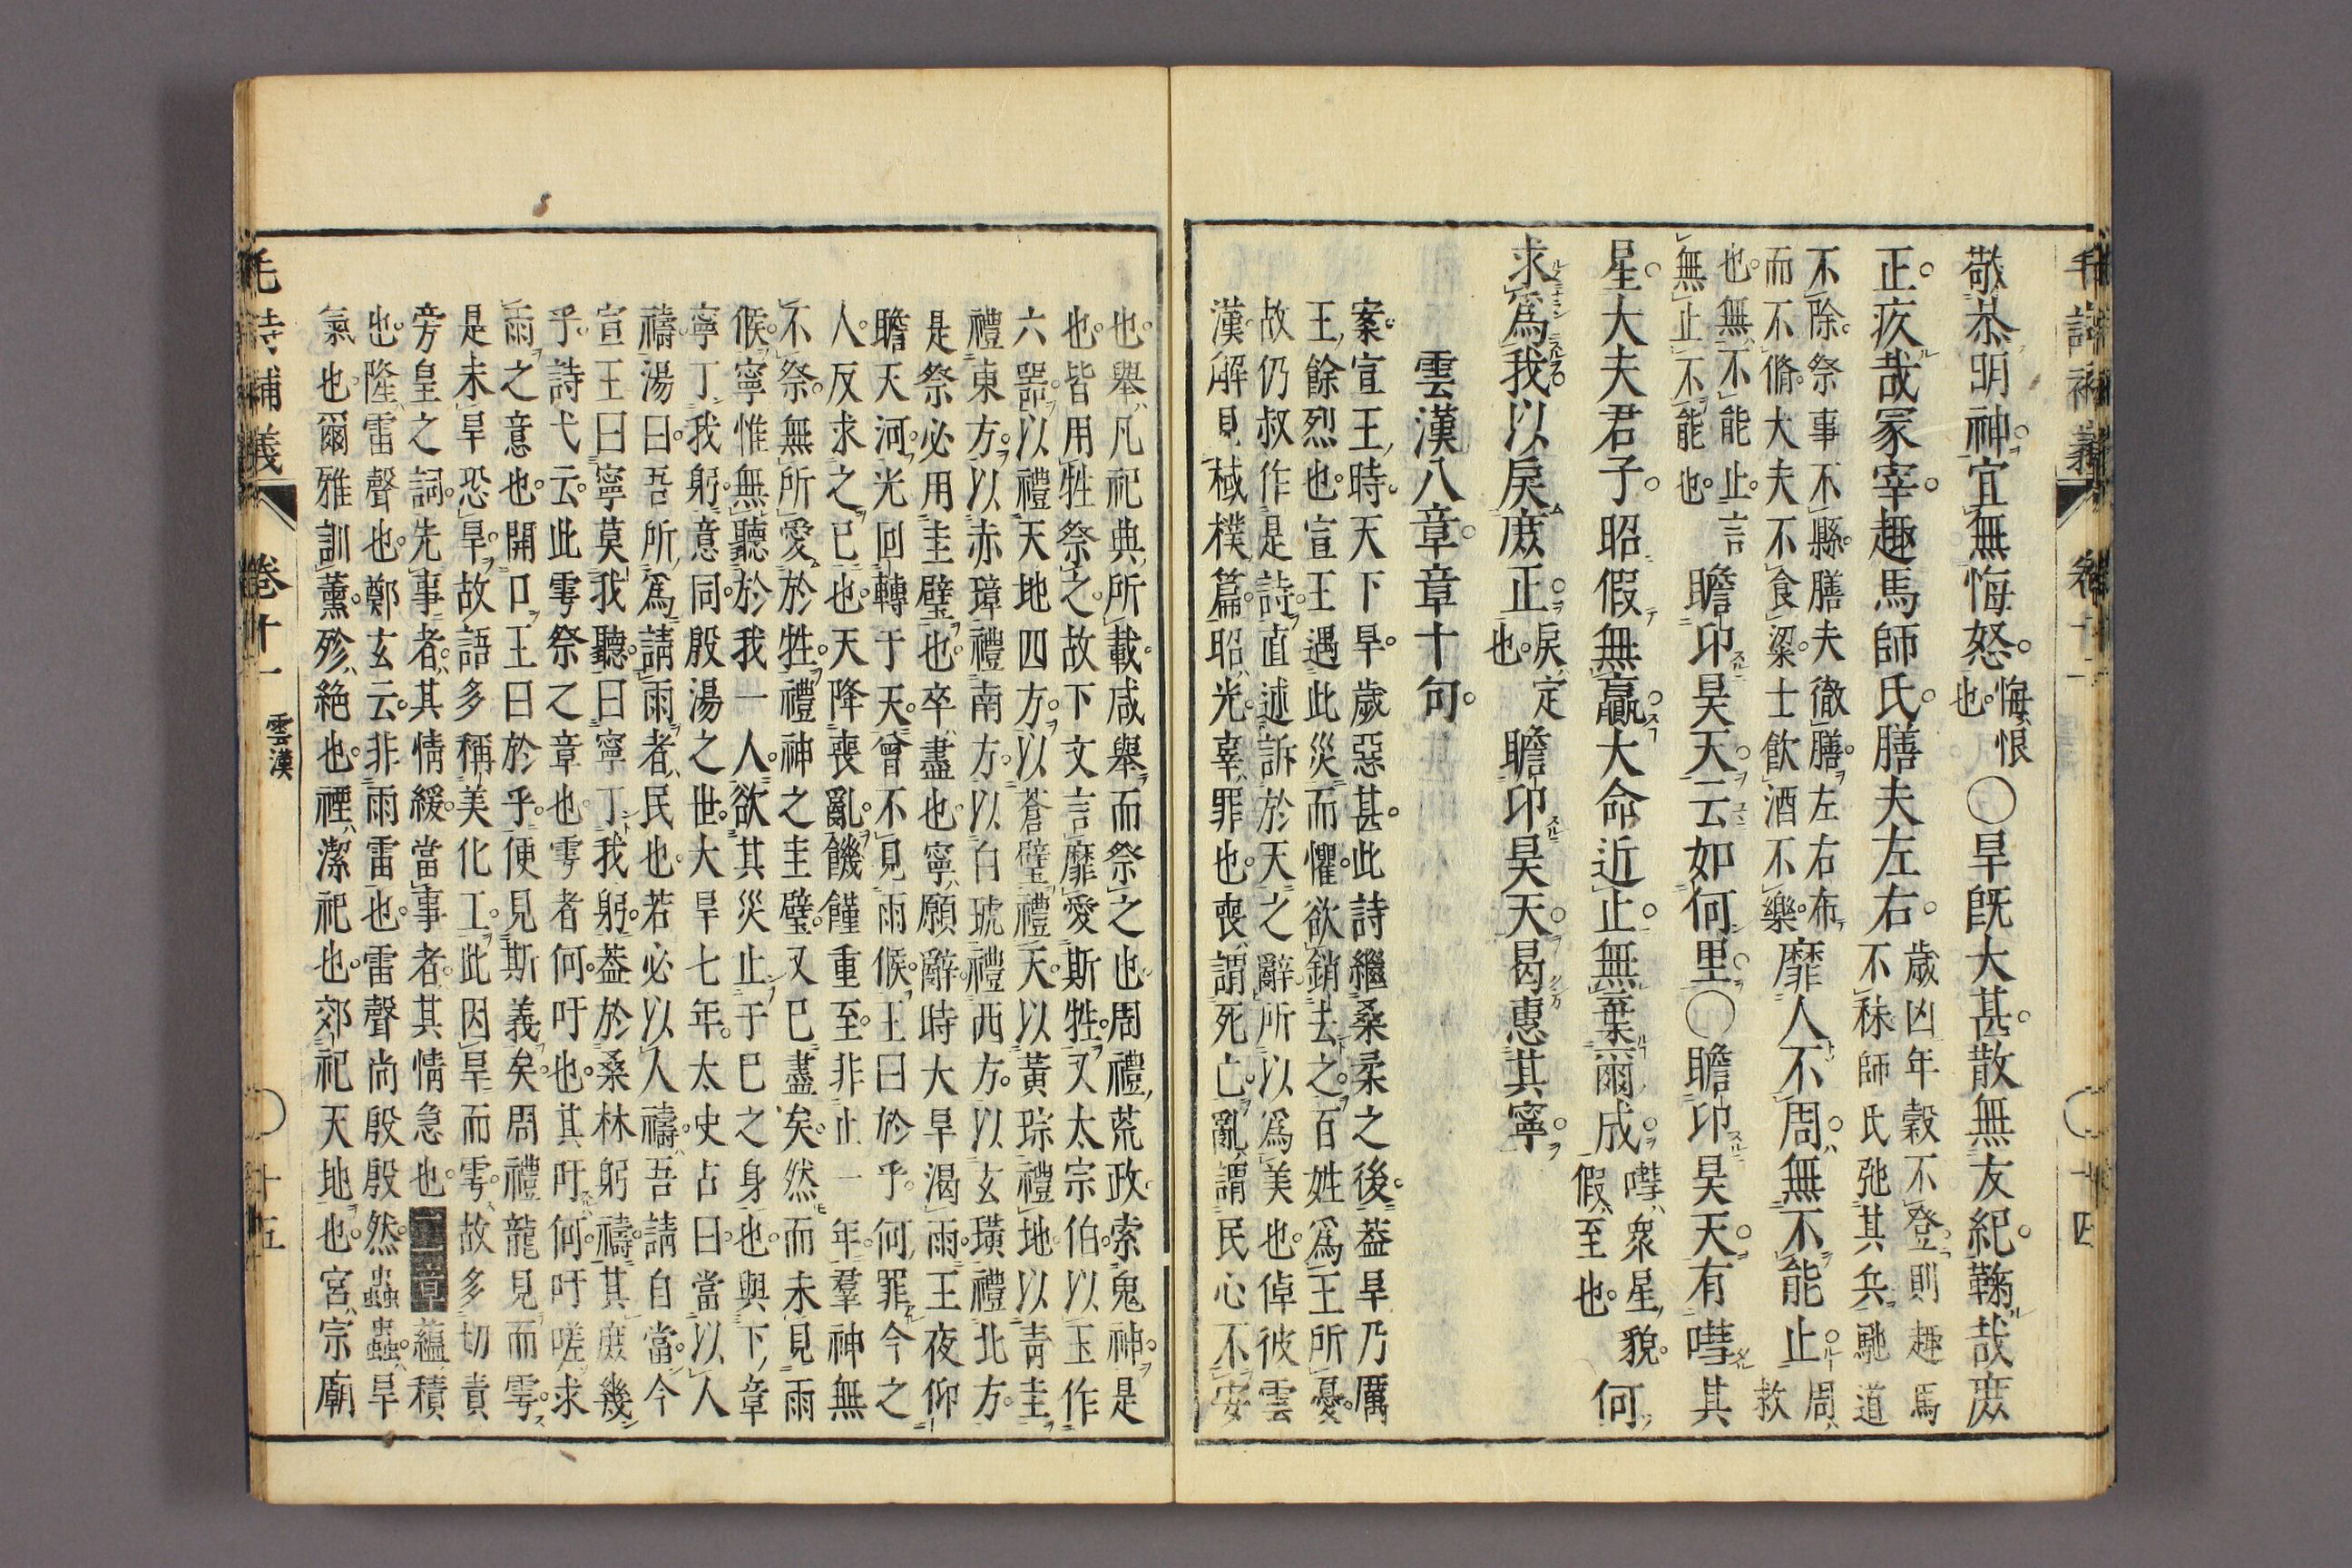 毛詩補義 卷十一 〇十四
敬恭明神。宜無悔怒。悔、恨也。〇旱既大甚。散無友紀。鞫哉庶
正。疚哉冢宰。趣馬師氏。膳夫左右。歲凶年穀不登。則趣馬不秣師氏弛其兵馳道
不除。祭事不縣。膳夫徹膳。左右布而不脩。大夫不食粱。士飲酒不樂。靡人不周。無不能止。周、救
也。無不能止。言無止不能也。瞻卬昊天。云如何里。〇瞻卬昊天。有嘒其
星。大夫君子。昭假無贏。大命近止。無棄爾成。嘒、衆星貌。假、至也。何
求爲我。以戾庶正。戾、定也。瞻卬昊天。曷惠其寧。
雲漢八章。章十句。
案。宣王時。天下旱。歲惡甚。此詩繼桑柔之後。蓋旱乃厲
王餘烈也。宣王遇此災而懼。欲銷去之。百姓爲王所憂。
故仍叔作是詩。直述訴於天之辭。所以爲美也。倬彼雲
漢解見棫樸篇。昭、光。辜、罪也。喪、謂死亡。亂、謂民心不安
也。舉、凡祀典所載。咸舉而祭之也。周禮荒政索鬼神。是
也。皆用牲祭之。故下文言靡愛斯牲。又太宗伯。以玉作
六器。以禮天地四方。以蒼璧禮天。以黃琮禮地。以青圭
禮東方。以赤璋禮南方。以白琥禮西方。以玄璜禮北方。
是祭必用圭璧也。卒、盡也。寧、願辭。時大旱渴雨。王夜仰
瞻天河。光回轉于天。曾不見雨候。王曰於乎。何罪今之
人。反求之已也。天降喪亂。饑饉重至。非止一年。羣神無
不祭。無所愛於牲。禮神之圭璧。又已盡矣。然而未見雨
候。寧惟無聽於我一人。欲其災止于已之身也。與下章
寧丁我躬。意同。殷湯之世。大旱七年。太史占曰。當以人
禱。湯曰。吾所爲請雨者。民也。若必以人禱。吾請自當。今
宣王曰寧莫我聽。曰寧丁我躬。蓋於桑林躬禱。其庶幾
乎。詩弋云。此雩祭之章也。雩者何。吁也。其吁何。吁嗟求
雨之意也。開口王曰於乎。便見斯義矣。周禮龍見而雩。
是未旱恐旱。故語多稱美化工。此因旱而雩。故多切責
旁皇之詞。先事者。其情緩。當事者。其情急也。二章蘊、積
也。隆、雷聲也。鄭玄云。非雨雷也。雷聲尚殷殷然。蟲蟲。旱
氣也。爾雅訓薰。殄、絕也。禋、潔祀也。郊、祀天地也。宮、宗廟
毛詩補義 卷十一 雲漢 〇十五